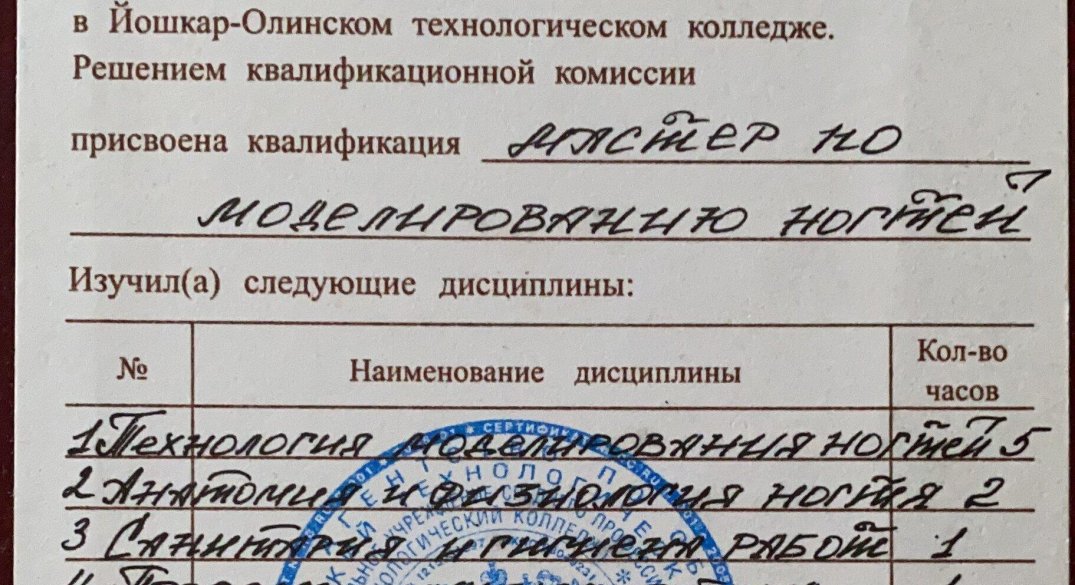 в Йошкар-Олинском технологическом колледже.
Решением квалификационной комиссии
присвоена квалификация мастер по
моделированию ногтей
Изучил(а) следующие дисциплины:
№ Наименование дисциплины Кол-во часов
1 Технология моделирования ногтей 5
2 Анатомия и физиология ногтя 2
3 Санитария и гигиена работ 1